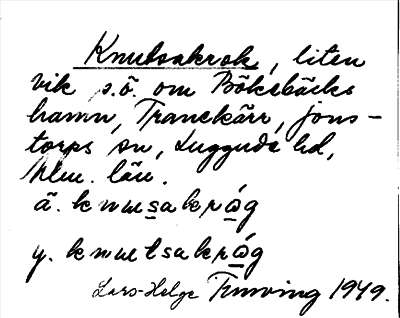 Knutsakrok, liten
vik s.ö. om Bökebäcks
hamn, Tranekärr, Jons-
torps sn, Luggude hd,
Mlm. län.
ä. knutsakrå̱g
y. knutsakrå̱g
Lars-Helge Truving 1949.